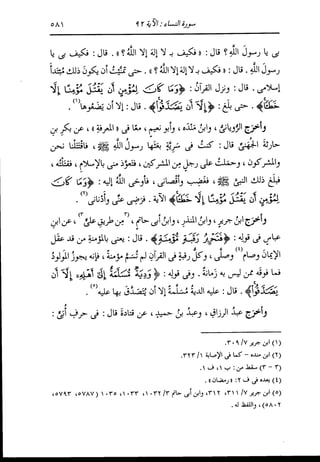 سورة النساء : الآية ٩٢
٥٨١
بى يا رسول الله؟ قال : « فكيف بـ لا إله إلا الله ؟ » . قال : فكيف بى يا
رسول الله . قال : « فكيف بـ لا إله إلا الله ؟ » . حتى تمنيت أن يكون ذلك مبتدأ
إسلامى . قال : ونزل القرآن : ﴿ وَمَا كَانَ لِمُؤْمِنٍ أَن يَقْتُلَ مُؤْمِنًا إِلَّا
خَطَـًٔا ﴾ . حتى بلغ : ﴿ إِلَّا أَن يَصَّدَّقُوا ﴾ . قال : إلا أن يضعوها(١) .
وأخرج الرويانى ، وابن منده ، وأبو نعيم ، معا فى « المعرفة » ، عن بكر بن
حارثة الجهنى قال : كنت فى سرية بعثها رسول الله ﷺ ، فاقتتلنا نحن
والمشركون ، وحملت على رجل من المشركين ، فتعوذ منى بالإسلام ، فقتلته ،
فبلغ ذلك النبى ﷺ ، فغضب وأقصانى ، فأوحى الله إليه : ﴿ وَمَا كَانَ
لِمُؤْمِنٍ أَن يَقْتُلَ مُؤْمِنًا إِلَّا خَطَـًٔا ﴾ الآية . فرضى عنى وأدنانى(٢) .
وأخرج ابن جرير ، وابن المنذر ، وابن أبى حاتم ، (٣من طريق على٣) ، عن ابن
عباس فى قوله : ﴿ فَتَحْرِيرُ رَقَبَةٍ مُّؤْمِنَةٍ ﴾ . قال : يعنى بالمؤمنة من قد عقل
الإيمان وصام(٤) وصلى ، وكل رقبة فى القرآن لم تسم مؤمنة ، فإنه يجوز المولود
فما فوقه ممن ليس به زمانة . وفى قوله : ﴿ وَدِيَةٌ مُّسَلَّمَةٌ إِلَىٰ أَهْلِهِ إِلَّا أَن
يَصَّدَّقُوا ﴾ . قال : عليه الدية مسلمة إلا أن يتصدق بها عليه(٥) .
وأخرج عبد الرزاق ، وعبد بن حميد ، عن قتادة قال : فى حرف أبى :
(١) ابن جرير ٧/ ٣٠٩.
(٢) ابن منده - كما فى الإصابة ١/ ٣٢٣.
(٣ - ٣) سقط من : ب ١، ف ١.
(٤) بعده فى ف ٢: « رمضان ».
(٥) ابن جرير ٧/ ٣١١، ٣١٢، وابن أبى حاتم ٣/ ١٠٣٢، ١٠٣٣، ١٠٣٥ (٥٧٨٧، ٥٧٩٣،
٥٨٠٢)، واللفظ له .